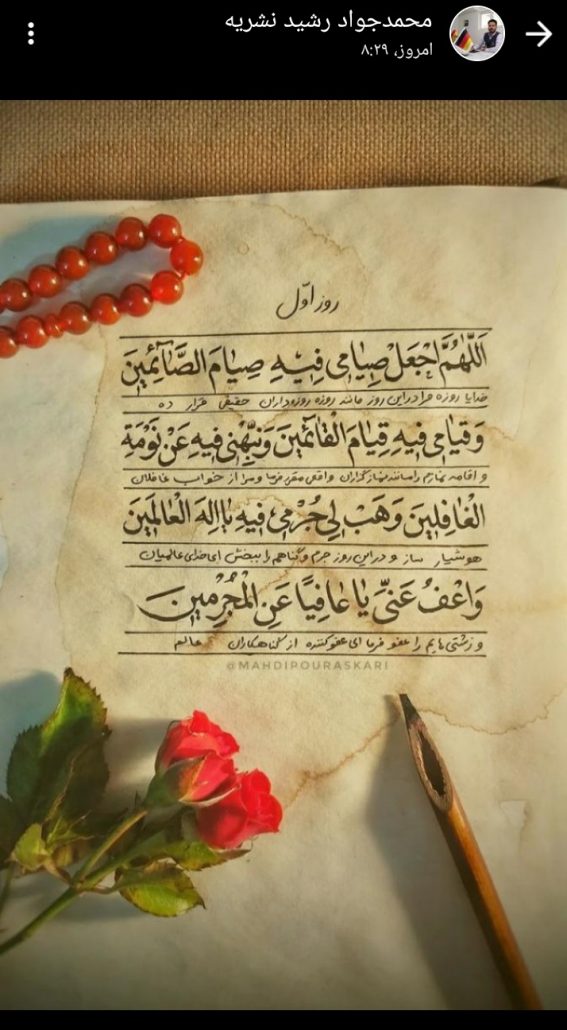 محمدجواد رشید نشریه
امروز، ۸:۲۹
روز اوّل
اَللّهُمَّ اجْعَلْ صِیٰامی فیٖهِ صِیٰامَ الصّٰآئِمینَ
خدایا روزه مرا در این روز مانند روزه روزه‌داران حقیقی قرار ده
وَ قِیٰامی فیهِ قِیٰامَ الْقٰائمینَ وَ نَبِّهْنی فیهِ عَنْ نَوْمَةِ
و اقامه نمازم را مانند نمازگزاران واقعی مقرر فرما و مرا از خواب غافلان
الْغٰافِلینَ وَ هَبْ لِی جُرْمی فیهِ یٰا اِلهَ الْعٰالَمینَ
هوشیار ساز و در این روز جرم و گناهم را ببخش ای خدای عالمیان
وَ اعْفُ عَنّیِ یٰا عٰافِیًا عَنِ الْمُجْرِمینَ
و زشتی‌هایم را عفو فرما ای عفو کننده از گناهکاران عالم
@MAHDIPOURASKARI